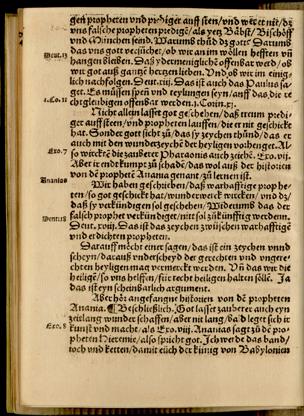 gen propheten und prediger auffsteen/ und wer es nit/ dz
uns falsche propheten predigē/ als yetz Bäbst/ Bischöff
und München send. Warumb thůt dz gott? Darumb
das uns gott versůchet/ ob wir an im wöllen hefften uñ
Deut.13
hangen bleiben. Das ydermenigliche offenbar werd/ ob
wir got auß gantzē hertzen lieben. Und ob wir im einig=
lich nachfolgen. Deut.xiij. Das ist auch das Paulus sa=
get. Es müssen spen und teylungen seyn/ auff das die re
1.Co.11
chtgleubigen offenbar werden. 1. Corin. xj.
Nicht allein lasset got geschehen/ das traum predi=
ger auffsteen/ und propheten lauffen/ die er nit geschickt
hat. Sonder gott sicht zů/ das sy zeychen thůnd/ das er
auch mit den wunderzeychē der heyligen verhenget. Al=
Exo.7
so wirckte die zauberer Pharaonis auch zeichē. Exo. vij.
Aber it end kumpt zů schad/ das wol auß der histori
Ananias
von dē prophetē Anania genant/ zů lernen ist.
Wir haben geschriben/ das warhafftige prophe=
ten/ so got geschickt hat/ wunderwerck wircke/ und dz/
das sy verkündigen sol geschehen. Widerumb das der
falsch prophet verkündiget/ nit sol zůkünfftig werdenn.
Deut.18
Deut. xviij. Das ist das zeychen zwüschen warhafftigē
und erdichten propheten.
Darauff möcht einer sagen/ das ist ein zeychen unnd
scheyn/ darauß underscheyd der gerechten und ungere=
chten heyligen mag vermerckt werden. Uñ das wir die
heiligē/ so uns helffen/ für recht heiligen halten söllē. Ja
das ist eyn scheinbarlich argument.
Aber hört angefangne historien von dē propheten
Anania. ¶ Beschließlich. Got lasset zauberer auch eyn
zeitlang wunder schaffen/ aber nit lang/ bald leget sich it
Exo.8
kunst und macht/ als Exo. viij. Ananias sagt zů dē pro=
pheten Hieremie/ also spricht got. Ich werde das band/
joch und ketten/ damit euch der künig von Babylonien